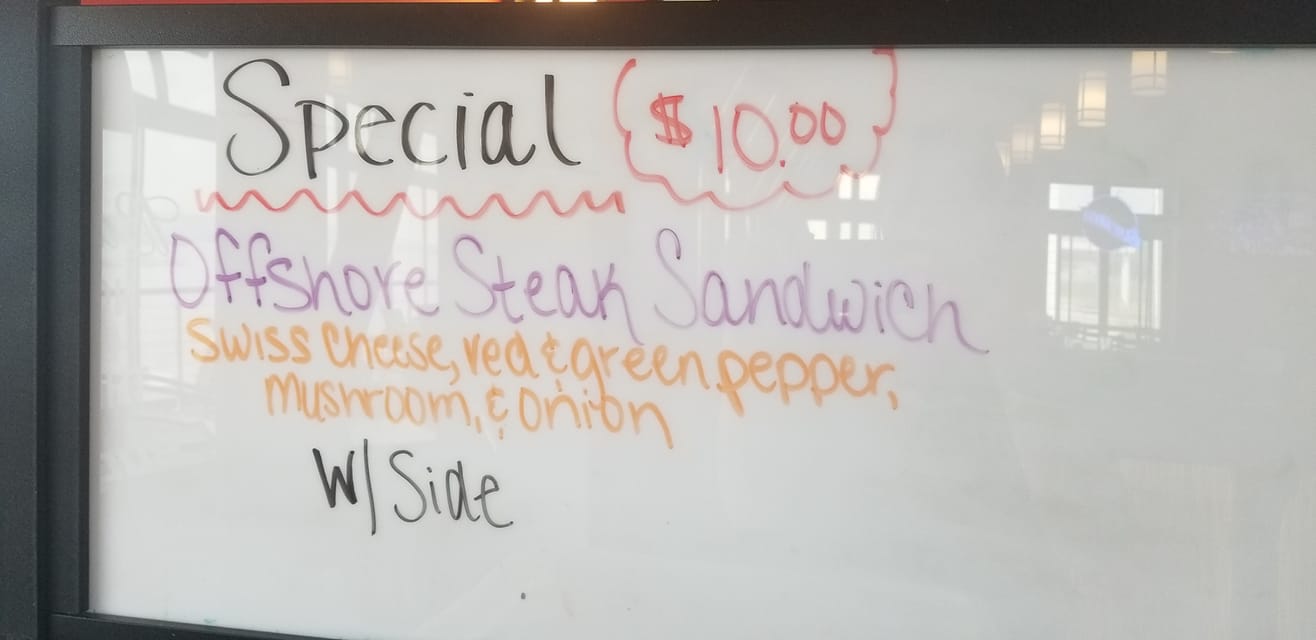 Special $10.00
Offshore Steak Sandwich
Swiss Cheese, red & green pepper,
Mushroom, & Onion
W/ Side